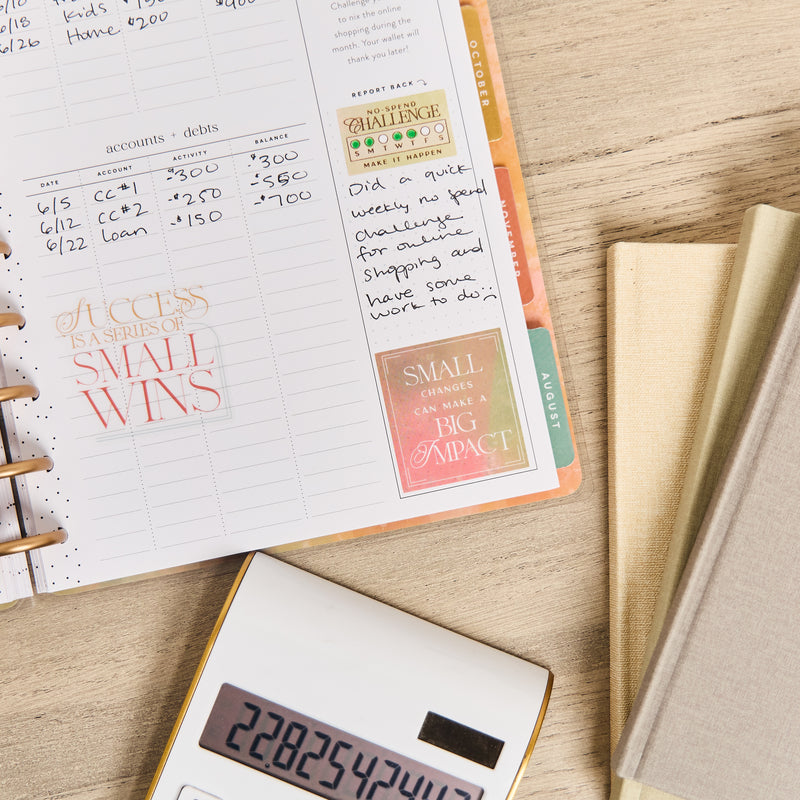 6/18 Kids
6/26 Home $200
Challenge y
to nix the online
shopping during the
month. Your wallet will
thank you later!
REPORT BACK
NO-SPEND
CHALLENGE
S M T W T F S
MAKE IT HAPPEN
Did a quick
weekly no spend
challenge
for online
shopping and
have some
work to do
SMALL
CHANGES
CAN MAKE A
BIG
IMPACT
accounts + debts
DATE ACCOUNT ACTIVITY BALANCE
6/5 CC #1 -$300 -$300
6/12 CC #2 -$250 -$550
6/22 Loan -$150 -$700
SUCCESS
IS A SERIES OF
SMALL
WINS
OCTOBER
NOVEMBER
AUGUST
22.8254244